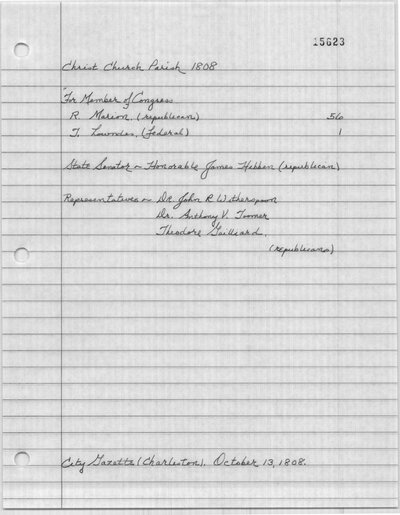 15623
Christ Church Parish 1808
"For Member of Congress
R. Marion, (republican) 56
T. Lowndes, (Federal) 1
State Senator ~ Honorable James Hibben (republican)
Representatives ~ Dr. John R Witherspoon
Dr. Anthony V. Toomer
Theodore Gailliard.
(republicans)
City Gazette (Charleston). October 13, 1808.